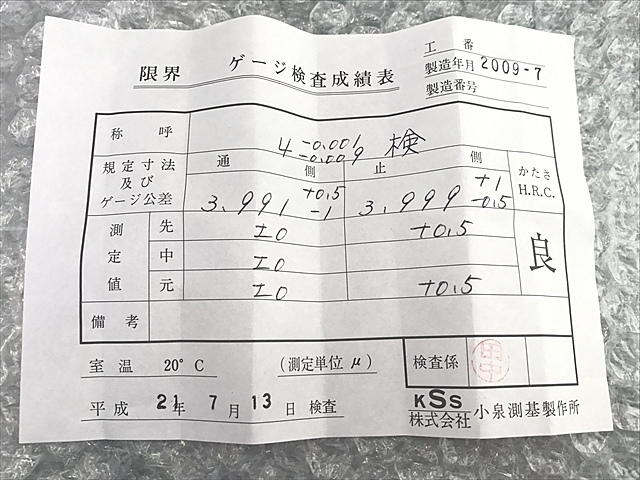 工番
限界 ゲージ検査成績表
製造年月 2009-7
製造番号
称呼 4 -0.001 -0.009 検
規定寸法及びゲージ公差 通側 止側 かたさ H.R.C.
3.991 +0.5 -1 3.999 +1 -0.5
測定値 先 ±0 +0.5 良
中 ±0
元 ±0 +0.5
備考
室温 20°C (測定単位 μ) 検査係
平成 21年 7月 13日 検査
KSS
株式会社 小泉測基製作所